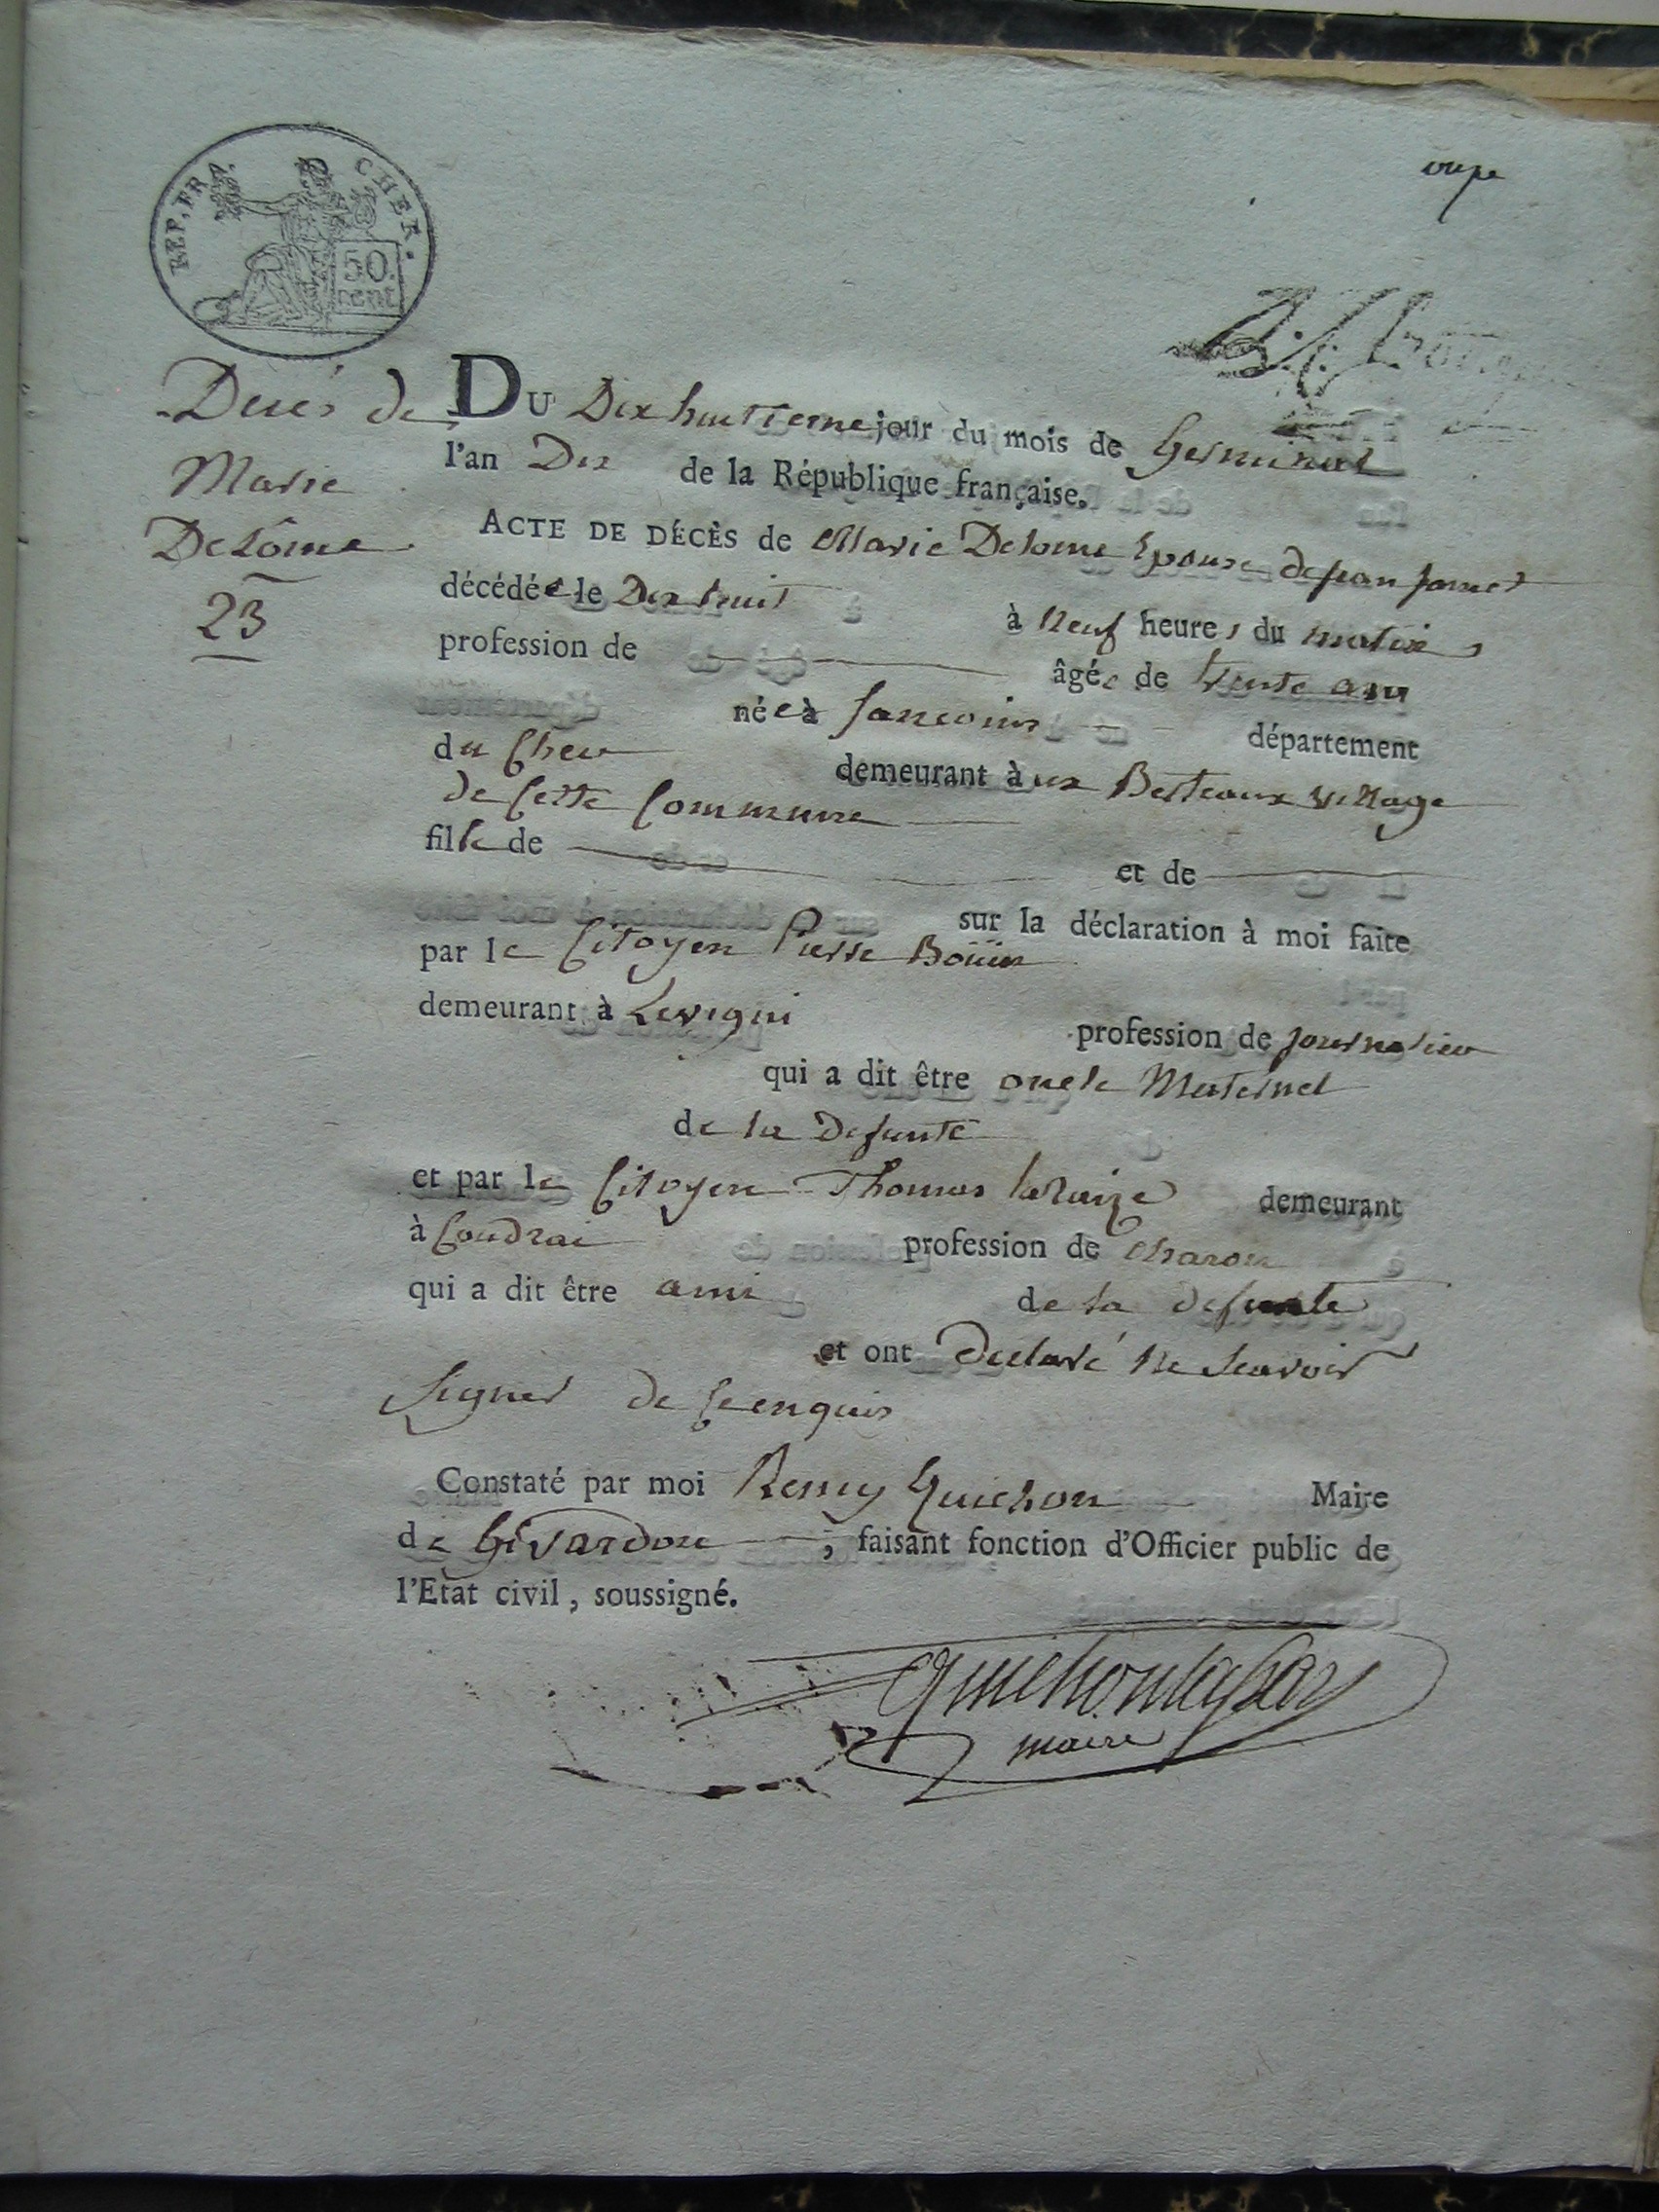 REP. FRA. CHER.
50 cent.
Decés de
Marie
Delôme
23
DU Dix huitieme jour du mois de Germinal
l'an Dix de la République française.
ACTE DE DÉCÈS de Marie Delome Epouse de jean jamet
décédée le Dix huit à Neuf heures du matin
profession de âgée de trente ans
née à Sancoins département
du Cher demeurant à ux Berteaux village
de Cette Commune
fille de et de
sur la déclaration à moi faite
par le Citoyen Pierre Boüin
demeurant à Levigni
profession de journalier
qui a dit être oncle Maternel
de la Defunte
et par le Citoyen Thomas demeurant
à Coudrai profession de charon
qui a dit être ami de la defunte
et ont Declaré ne scavoir
Signer de ce enquis
Constaté par moi Remy Guichon Maire
de Givardon, faisant fonction d'Officier public de
l'Etat civil, soussigné.
maire